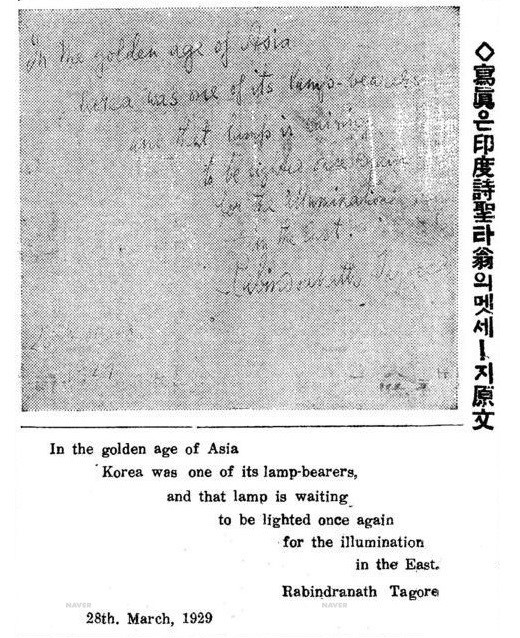 In the golden age of Asia
Korea was one of its lamp-bearers
and that lamp is waiting
to be lighted once again
for the illumination
in the East.
Rabindranath Tagore
◇寫眞은印度詩聖타翁의멧세ー지原文
In the golden age of Asia
Korea was one of its lamp-bearers,
and that lamp is waiting
to be lighted once again
for the illumination
in the East.
Rabindranath Tagore
28th. March, 1929
NAVER
NAVER